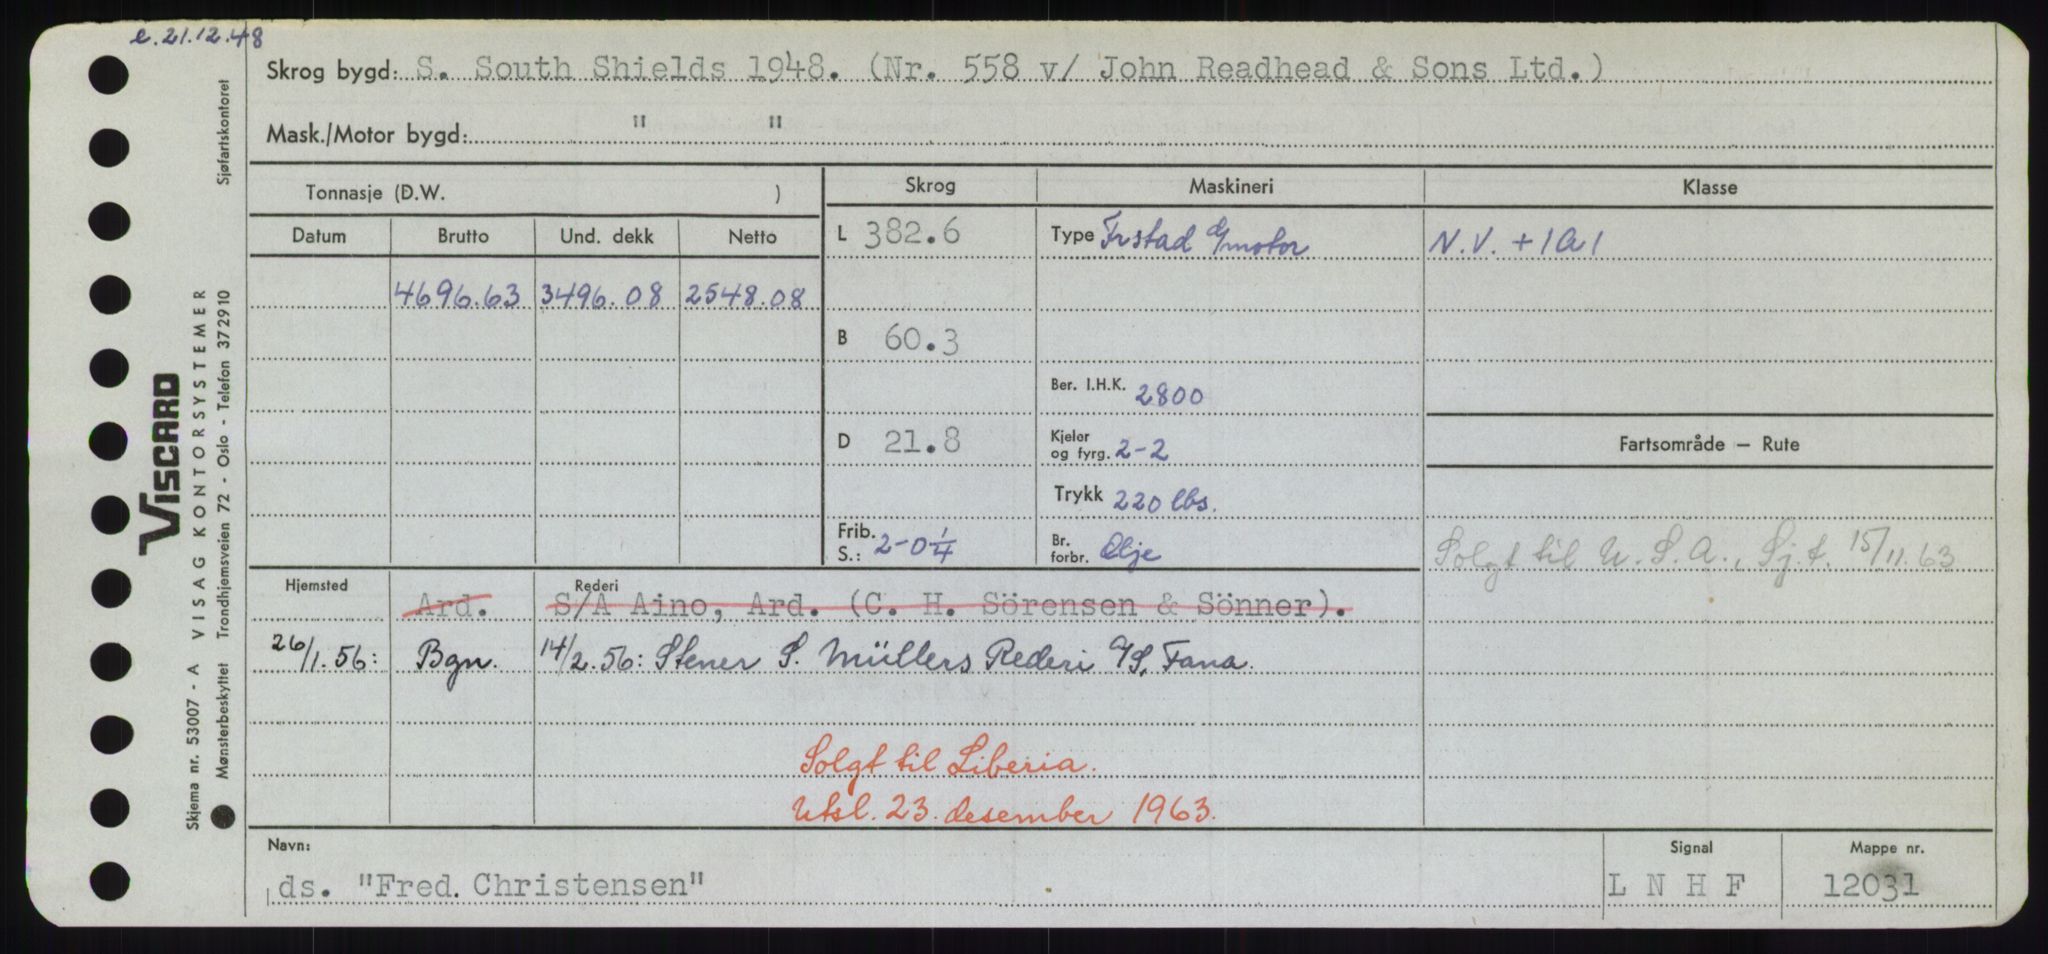 e. 21.12.48
Skrog bygd: S. South Shields 1948. (Nr. 558 v/ John Readhead & Sons Ltd.)
Mask./Motor bygd: " "
Tonnasje (D.W. )
Skrog Maskineri Klasse
Datum Brutto Und. dekk Netto
L 382.6 Type Frstad d/motor N.V. + 1A1
4696.63 3496.08 2548.08
B 60.3
Ber. I.H.K. 2800
D 21.8 Kjeler og fyrg. 2-2 Fartsområde – Rute
Trykk 220 lbs.
Frib. S.: 2-0 1/4 Br. forbr. Olje Solgt til U.S.A., Sj.t. 15/11.63
Hjemsted Rederi
Ard. S/A Aino, Ard. (C. H. Sörensen & Sönner).
26/1.56: Bgn. 14/2.56: Stener S. Müllers Rederi A/S, Fana.
Solgt til Liberia.
Utsl. 23. desember 1963.
Navn: Signal Mappe nr.
ds. "Fred. Christensen" L N H F 12031
VISCARD
Skjema nr. 53007 - A VISAG KONTORSYSTEMER
Mønsterbeskyttet Trondhjemsveien 72 - Oslo - Telefon 372910 Sjøfartskontoret